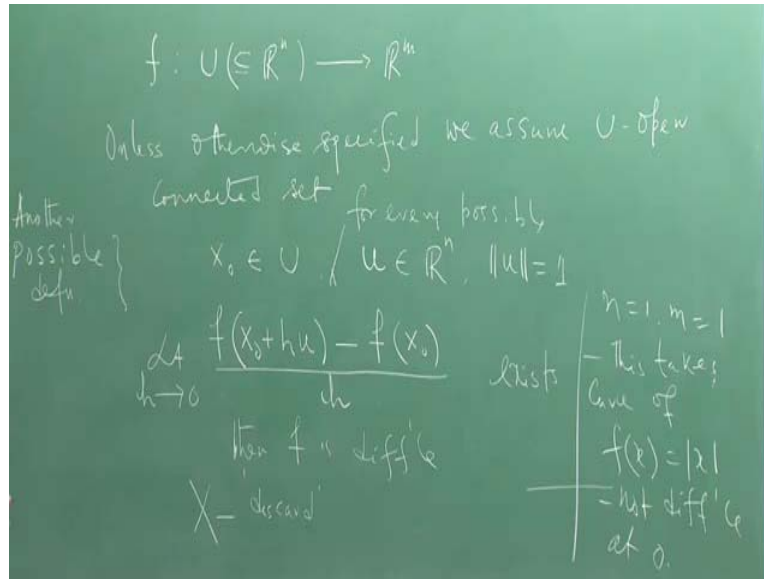 f : U(⊆ ℝⁿ) ⟶ ℝᵐ
Unless otherwise specified we assume U - open
connected set
for every possible
Another
possible
defn.
x₀ ∈ U / u ∈ ℝⁿ, ||u|| = 1
Lt h→0 (f(x₀+hu) − f(x₀)) / h exists
then f is diff'le
X − 'discard'
n=1, m=1
- This takes
care of
f(x) = |x|
- not diff'le
at 0.